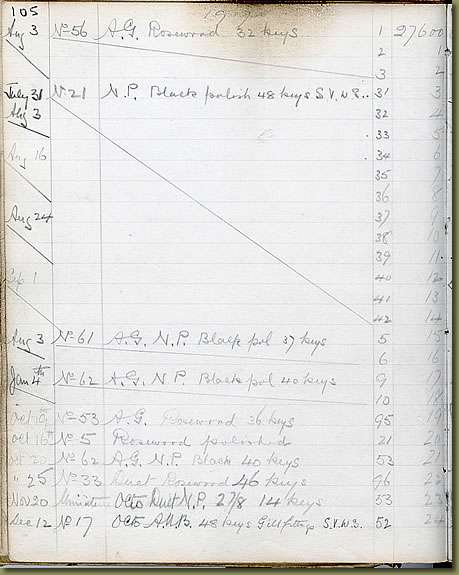 105
Aug 3 No 56 A.G. Rosewood 32 keys 1 27600
2 1
3 2
July 31 No 21 N.P. Black polish 48 keys S.V.W.S. 31 3
Aug 3 32 4
33 5
Aug 16 34 6
35 7
36 8
Aug 24 37 9
38 10
39 11
Sep 1 40 12
41 13
42 14
Aug 3 No 61 A.G. N.P. Black pol 37 keys 5 15
6 16
Jan 4th No 62 A.G. N.P. Black pol 40 keys 9 17
10 18
Oct 19 No 53 A.G. Rosewood 36 keys 95 19
Oct 16 No 5 Rosewood polished 21 20
Oct 20 No 62 A.G. N.P. Black 40 keys 53 21
" 25 No 33 Duet Rosewood 46 keys 96 22
Nov 20 Miniature Octo Duet N.P. 2 7/8 14 keys 53 23
Dec 12 No 17 Octo 48 keys Gilt fittings S.V.W.S. 52 24